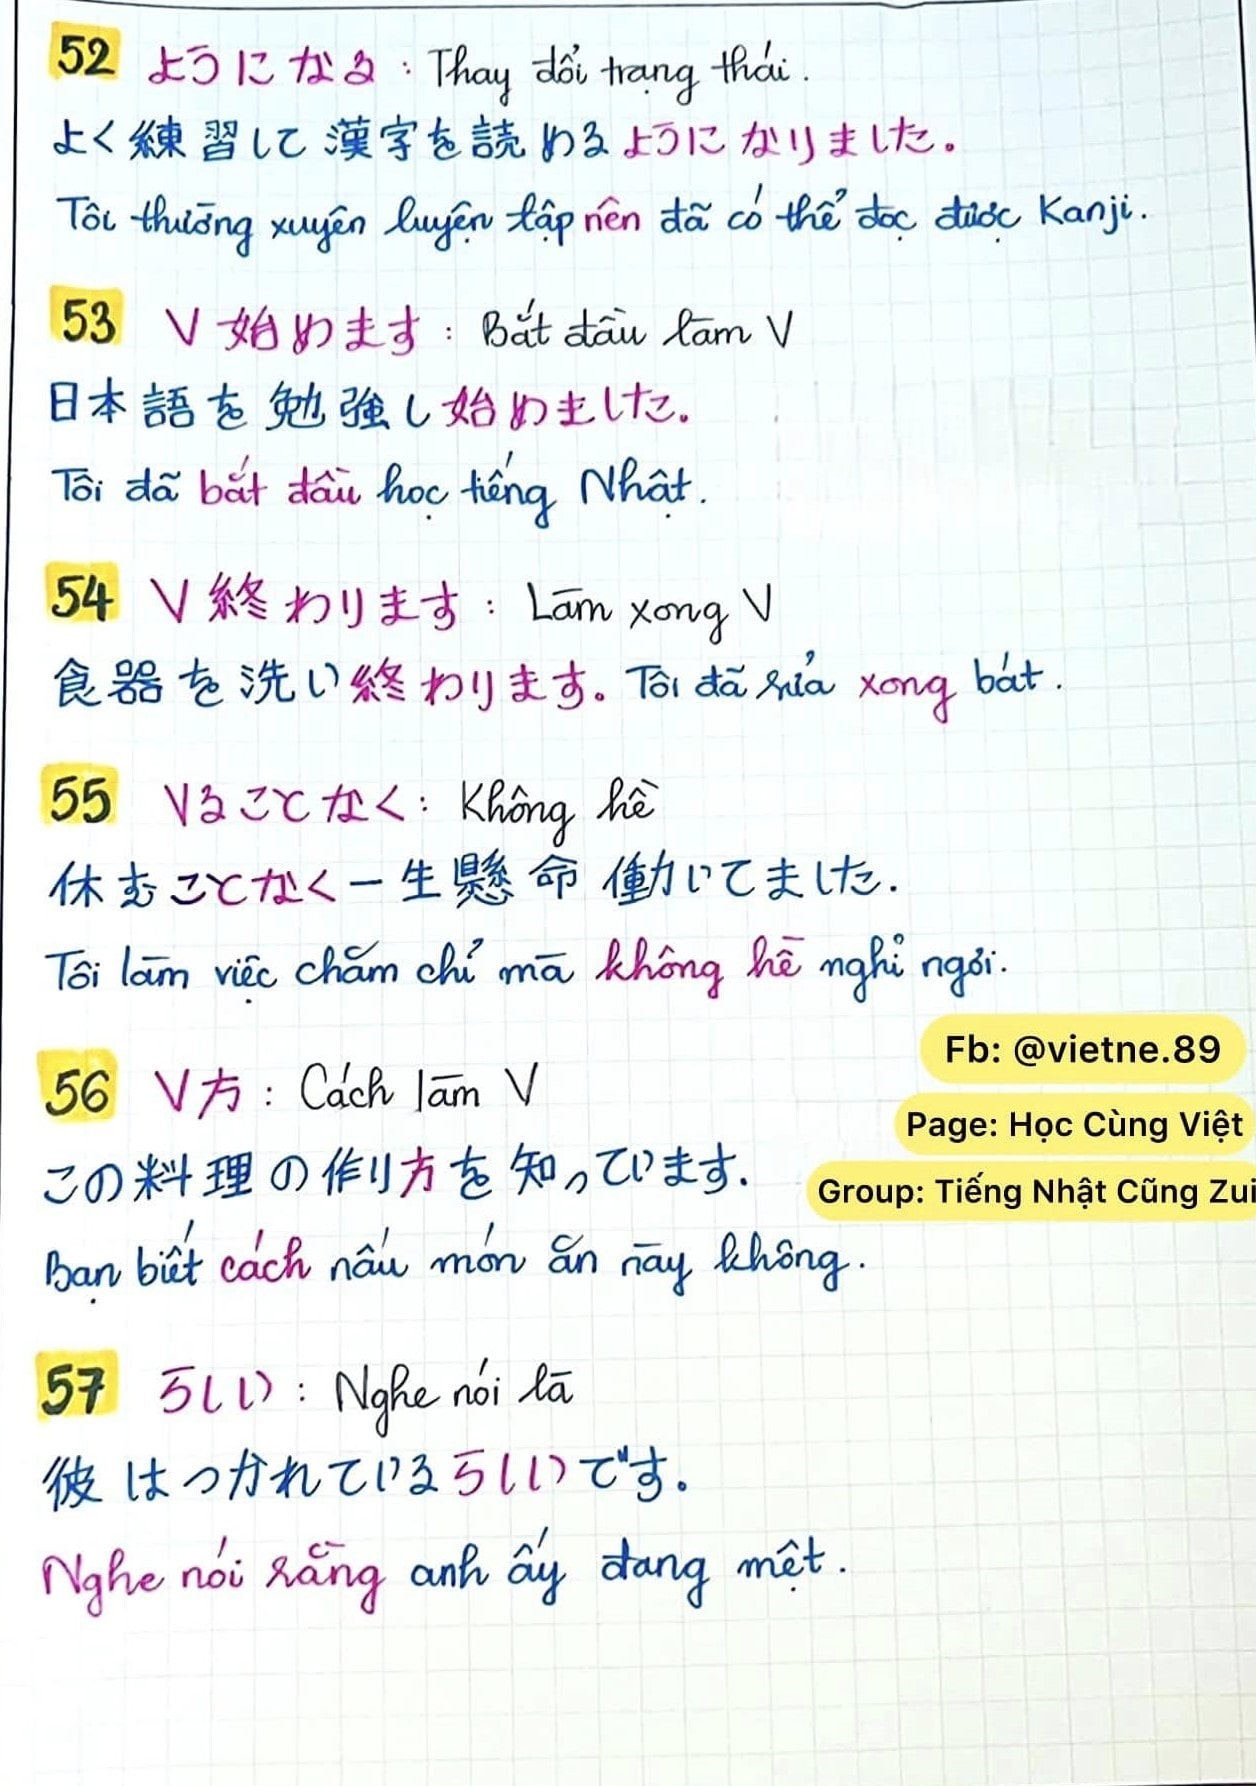 52 ようになる : Thay đổi trạng thái.
よく練習して漢字を読めるようになりました。
Tôi thường xuyên luyện tập nên đã có thể đọc được Kanji.
53 V始めます : Bắt đầu làm V
日本語を勉強し始めました。
Tôi đã bắt đầu học tiếng Nhật.
54 V終わります : Làm xong V
食器を洗い終わります。Tôi đã rửa xong bát.
55 Vることなく : Không hề
休むことなく一生懸命働いてました.
Tôi làm việc chăm chỉ mà không hề nghỉ ngơi.
Fb: @vietne.89
56 V方 : Cách làm V
Page: Học Cùng Việt
この料理の作り方を知っています.
Group: Tiếng Nhật Cũng Zui
Bạn biết cách nấu món ăn này không.
57 らしい : Nghe nói là
彼はつかれているらしいです。
Nghe nói rằng anh ấy đang mệt.